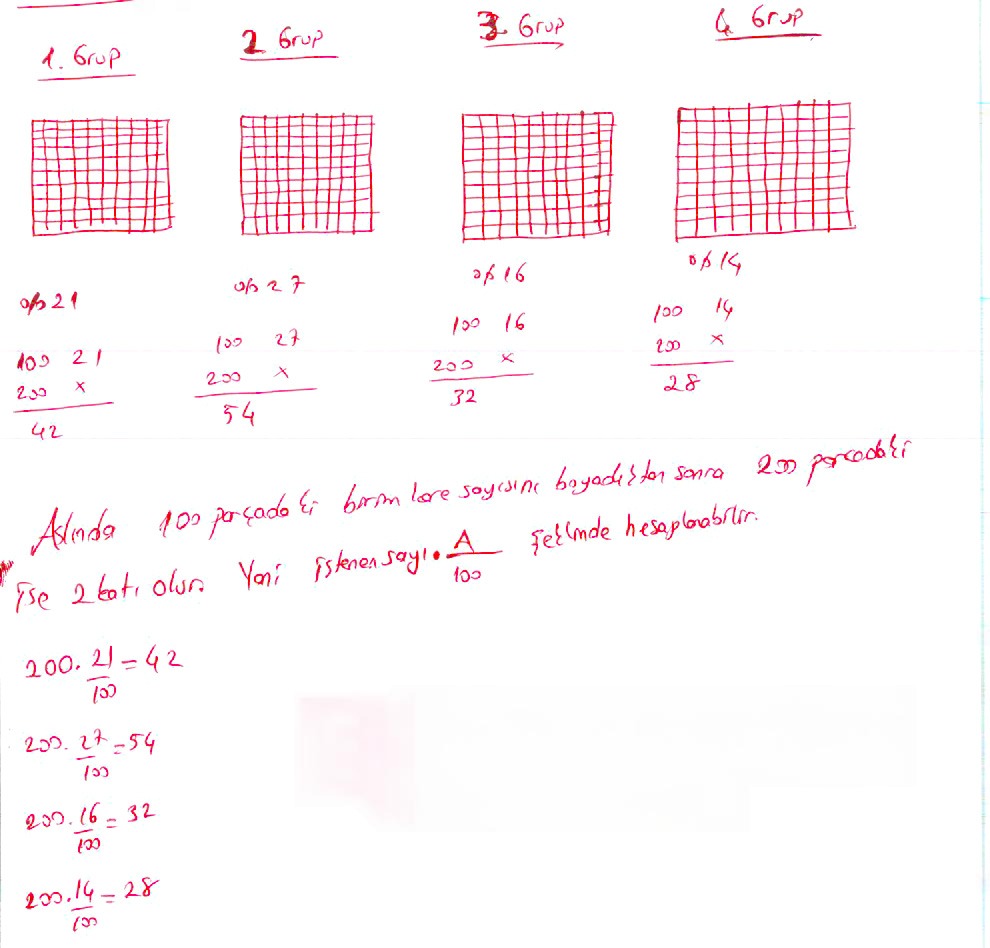 1. Grup 2 Grup 3. Grup 4 Grup
% 21 % 27 % 16 % 14
100 21 100 27 100 16 100 14
200 x 200 x 200 x 200 x
42 54 32 28
Aslında 100 parçadaki birim kare sayısını boyadıktan sonra 200 parçadaki
ise 2 katı olur. Yani istenen sayı · A/100 şeklinde hesaplanabilir.
200. 21/100 = 42
200. 27/100 = 54
200. 16/100 = 32
200. 14/100 = 28